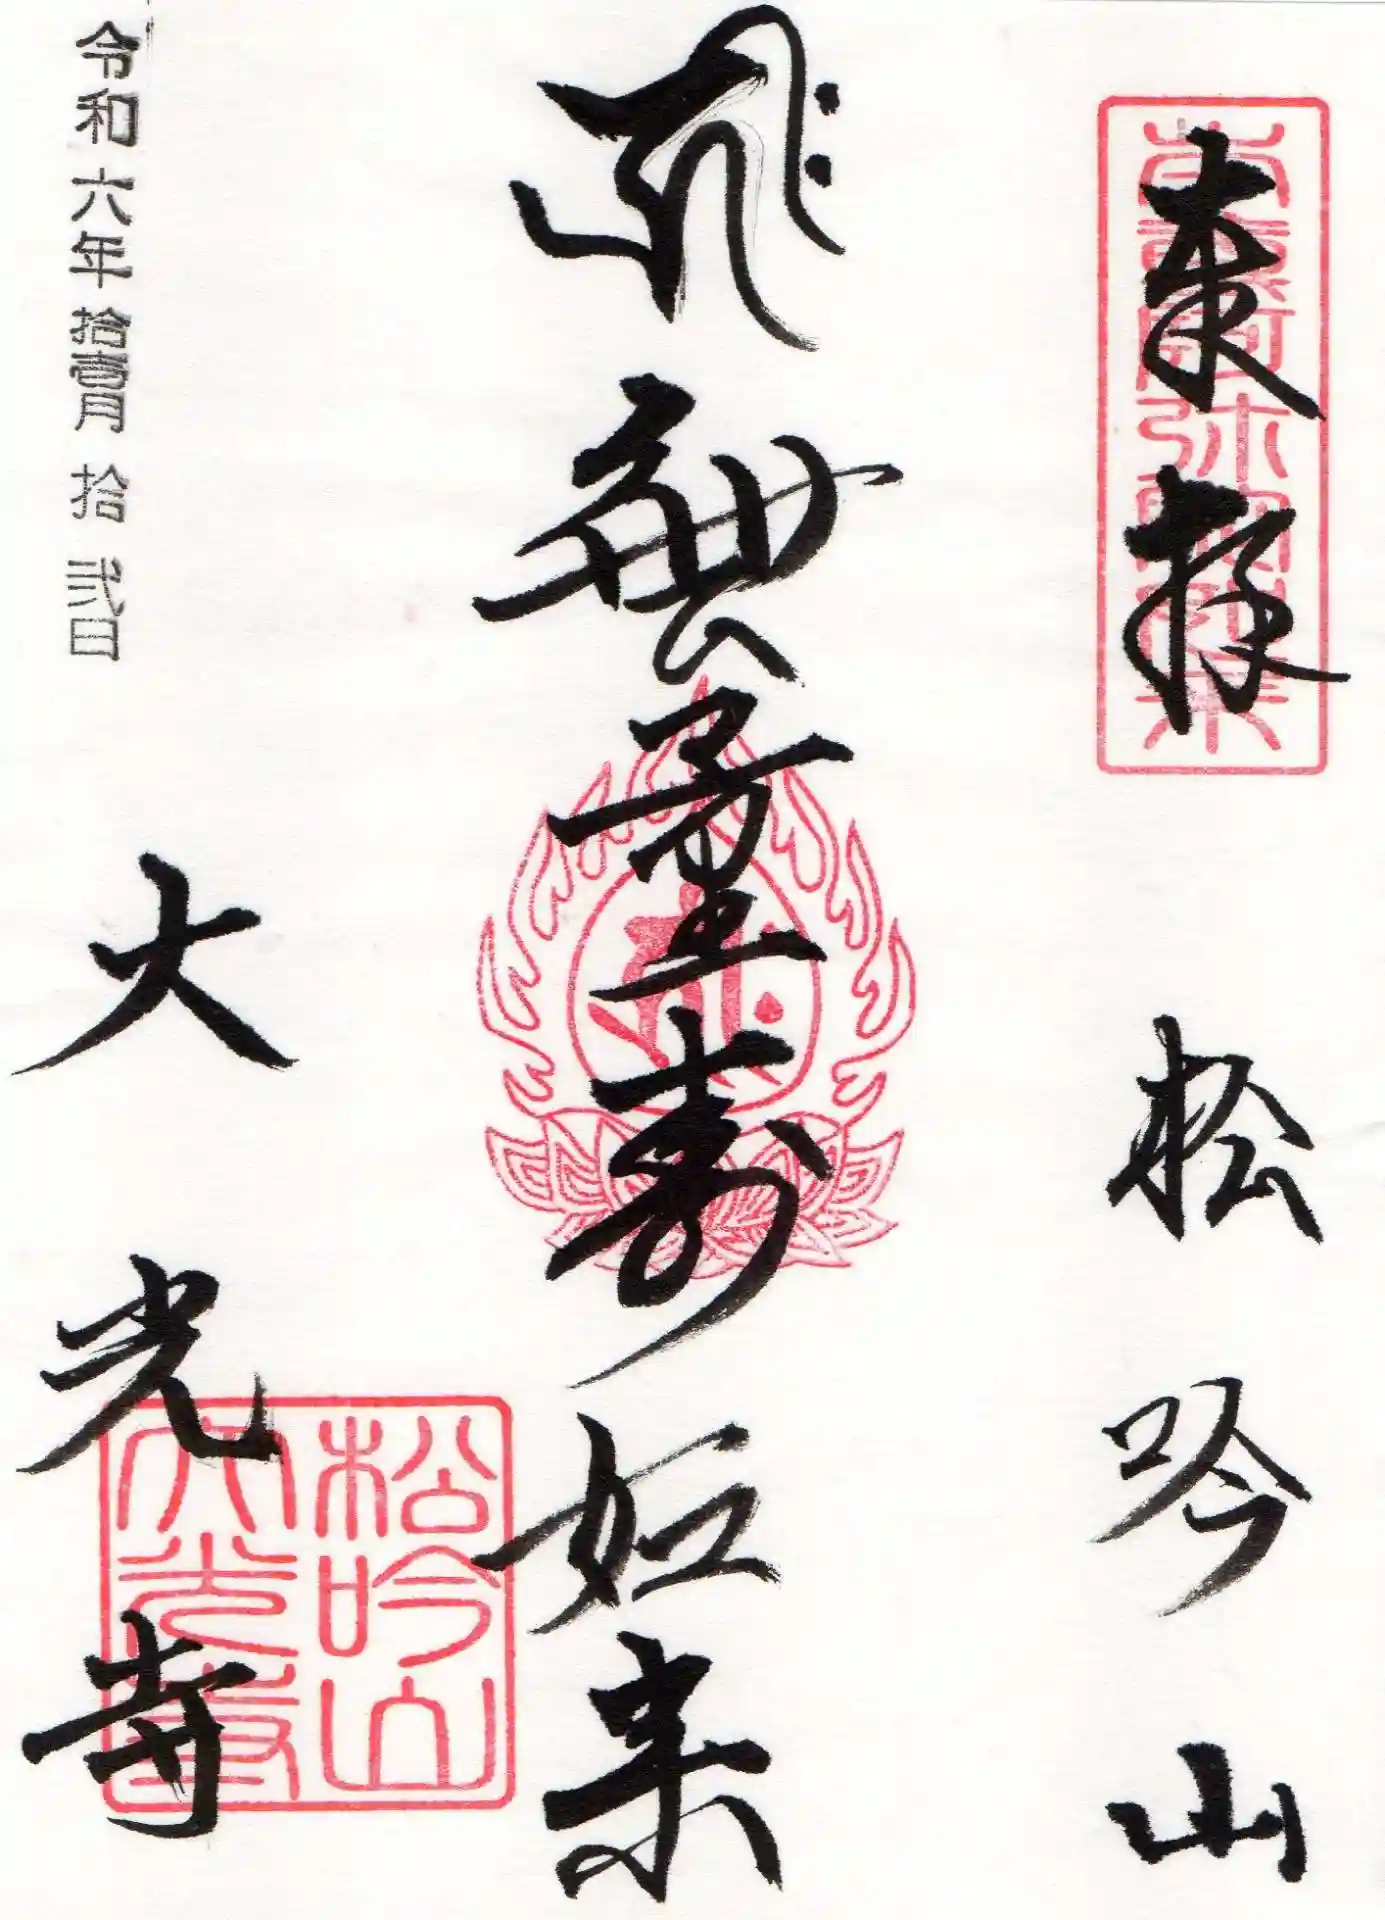 奉拝
松吟山
無量寿如来
令和六年拾壹月拾弐日
大光寺
松吟山
大光寺